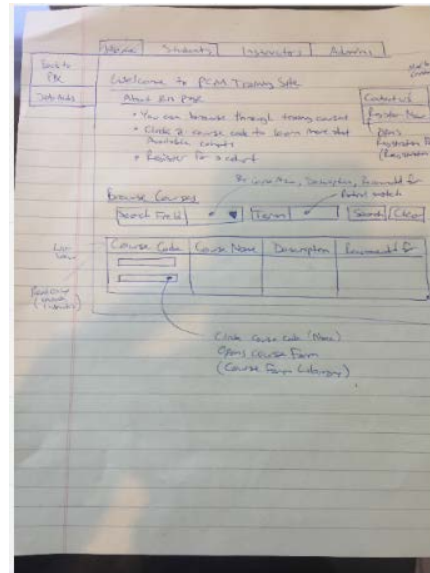 Home Students Instructors Admins
Back to
Job Aids
Welcome to PCM Training Site
About this Page
• You can browse through training courses
• Click a course code to learn more about
Available cohorts
• Register for a cohort
Contact us
Register Now
Opens
Registration
(Registration
By Course Name, Description, Recommend for
Partial match
Browse Courses
Search Field Term Search Clear
Course Code Course Name Description Recommend for
Click course code (Name)
Opens Course Form
(Course Form Library)